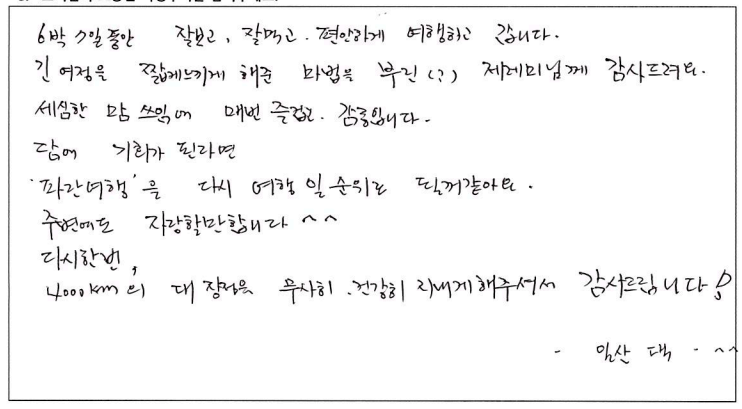 6박 7일동안 잘보고, 잘먹고, 편안하게 여행하고 갑니다.
긴 여정을 짧게느끼게 해준 마법을 부린(?) 제레미님께 감사드려요.
세심한 맘 쓰임에 매번 즐겁고, 감동입니다.
담에 기회가 된다면
'파란여행'을 다시 여행 일순위로 될꺼같아요.
주변에도 자랑할만합니다 ^^
다시한번,
4000km의 대장정을 무사히, 건강히 지내게해주셔서 감사드립니다!
- 일산 댁 - ^^